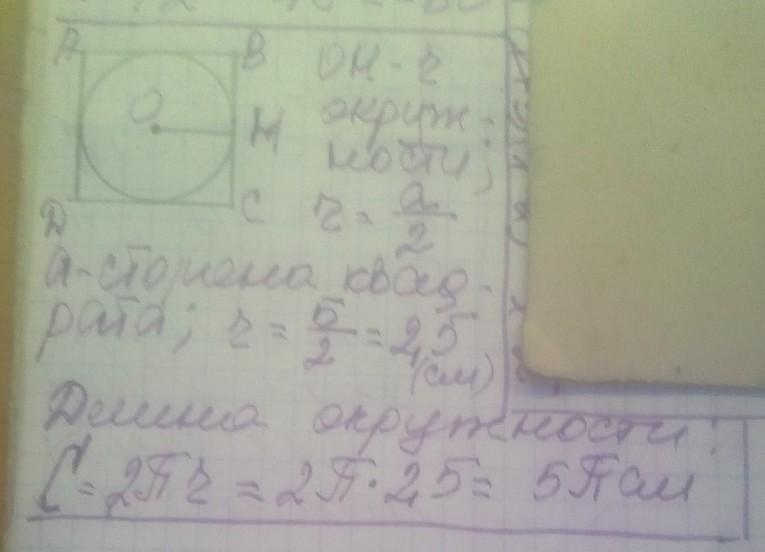 A B
O
M
D C
ОН - r
окруж-
ности;
r = a/2
a-сторона квад-
рата; r = 5/2 = 2,5
(см)
Длина окружности:
C = 2πr = 2π · 2,5 = 5π см